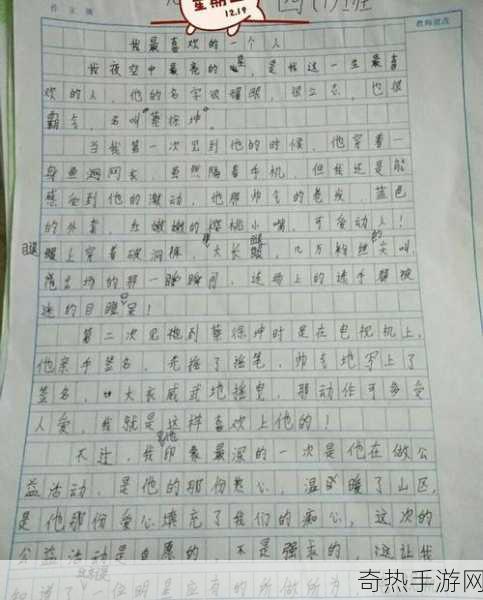 作文稿
教师批改
星期
12.19
四(1)班
我最喜欢的一个人
我夜空中最亮的星，是我这一生最喜
欢的人，他的名字很耀眼，很立志，也很
霸气，名叫“蔡徐坤”。
当我第一次见到他的时候，他穿着一
身鱼网衣，虽然隔着手机，但我还是能
感受到他的激动，他那帅气的卷发，蓝色
的外套，红嫩嫩的樱桃小嘴，可爱动人！
腿上穿着破洞裤，大长腿，几万粉丝的尖叫，
他出场的那一瞬间，这场上的选手都被
迷的目瞪口呆！
第二次见到蔡徐坤时是在电视机上，
他亲手签名，先摇了摇笔，帅气地写上了
签名，大衣威武地摇曳，那动作可多受
人爱，我就是这样喜欢上他的！
不过，我印象最深的一次是他在做公
益活动，是他的那份热心，温暖了山区，
是他那份爱心填充了我们的痴心，这次的
公益活动是自愿的，不是强求的，这让我
知道了一位明星应有的所做所为
奇热手游网